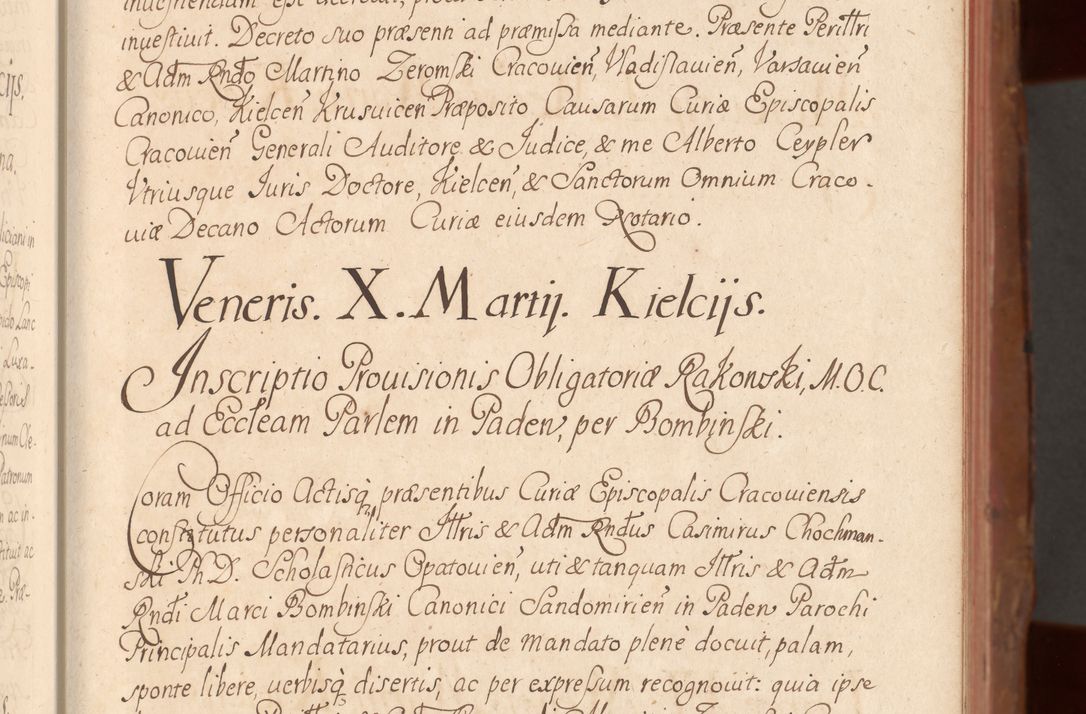 inuestiuit. Decreto suo præsenti ad præmissa mediante. Præsente Perilltri
& Adm Rndo Martino Zeromski Cracouien, Vladislauien, Varsauien
Canonico, Kielcen Krusuicen Præposito Causarum Curiæ Episcopalis
Cracouien Generali Auditore & Judice, & me Alberto Ceypler
Vtriusque Iuris Doctore, Kielcen, & Sanctorum Omnium Craco-
uiæ Decano Actorum Curiæ eiusdem Notario.
Veneris. X. Martij. Kielcijs.
Inscriptio Prouisionis Obligatoriæ Rakowski, M.O.C.
ad Eccleam Parlem in Paden, per Bombinski.
Coram Officio Actisq præsentibus Curiæ Episcopalis Cracouiensis
constitutus personaliter Illtris & Adm Rndus Casimirus Chochman-
ski Ph D. Scholasticus Opatouien, uti & tanquam Illtris & Adm
Rndi Marci Bombinski Canonici Sandomirien in Paden Parochi
Principalis Mandatarius, prout de mandato plenè docuit, palam,
sponte libere, uerbisq disertis, ac per expressum recognouit: quia ipse